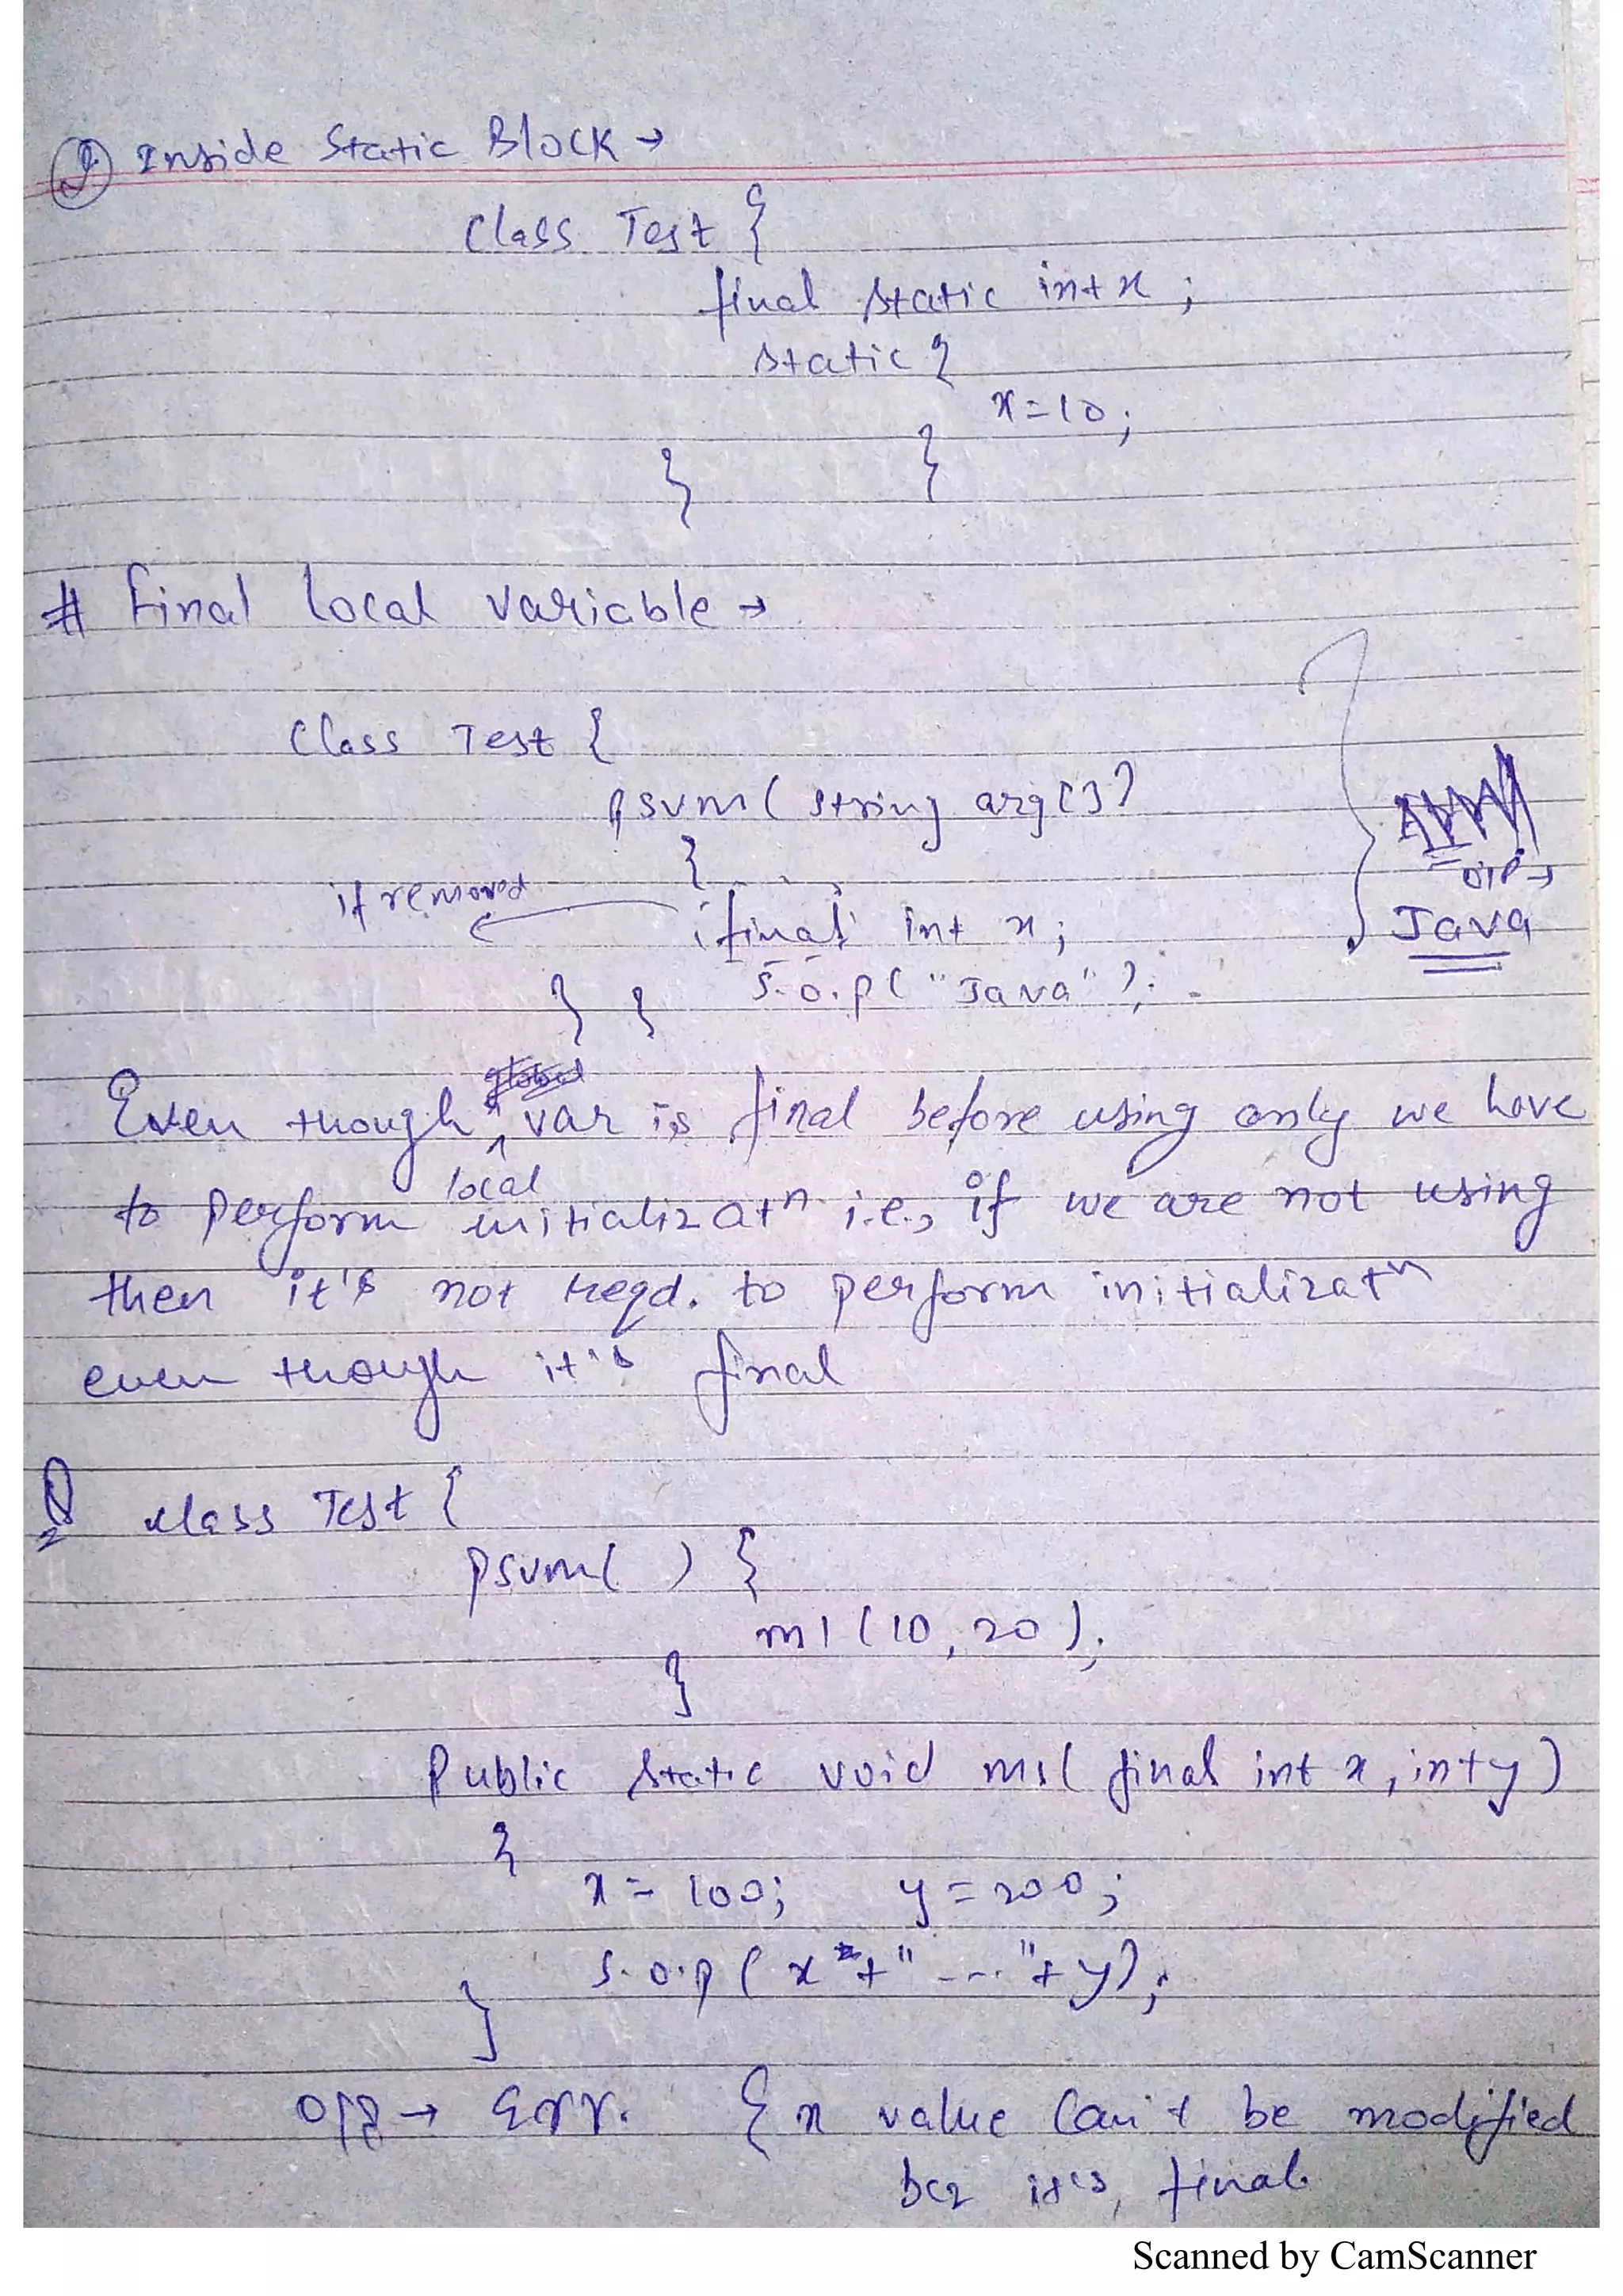 ② Inside Static Block →
Class Test {
final static int x ;
static {
x = 10 ;
}
}
# Final local variable →
Class Test {
psvm ( string arg [ ] )
{
if removed
final int x ;
O/P →
Java
S.o.p ( "Java" ) ;
} }
Even though local var is final before using only we have
to perform initializatⁿ i.e., if we are not using
then it's not reqd. to perform initializatⁿ
even though it's final
Q class Test {
psvm ( ) {
m1 ( 10 , 20 ) ;
}
Public static void m1 ( final int x , int y )
{
x = 100 ; y = 200 ;
S.o.p ( x + " --- " + y ) ;
}
O/P → Err. { x value can't be modified
bcz it's , final
Scanned by CamScanner